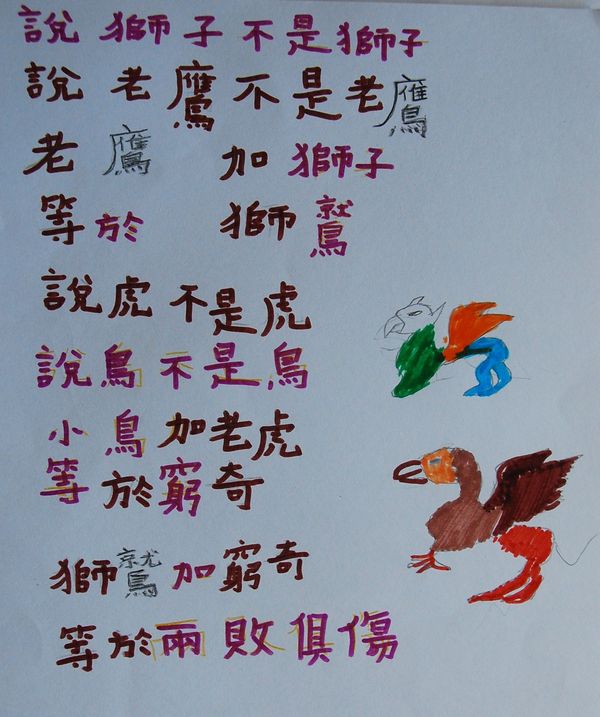 說獅子不是獅子
說老鷹不是老鷹
老鷹 加獅子
等於 獅鷲
說虎不是虎
說鳥不是鳥
小鳥加老虎
等於窮奇
獅鷲加窮奇
等於兩敗俱傷